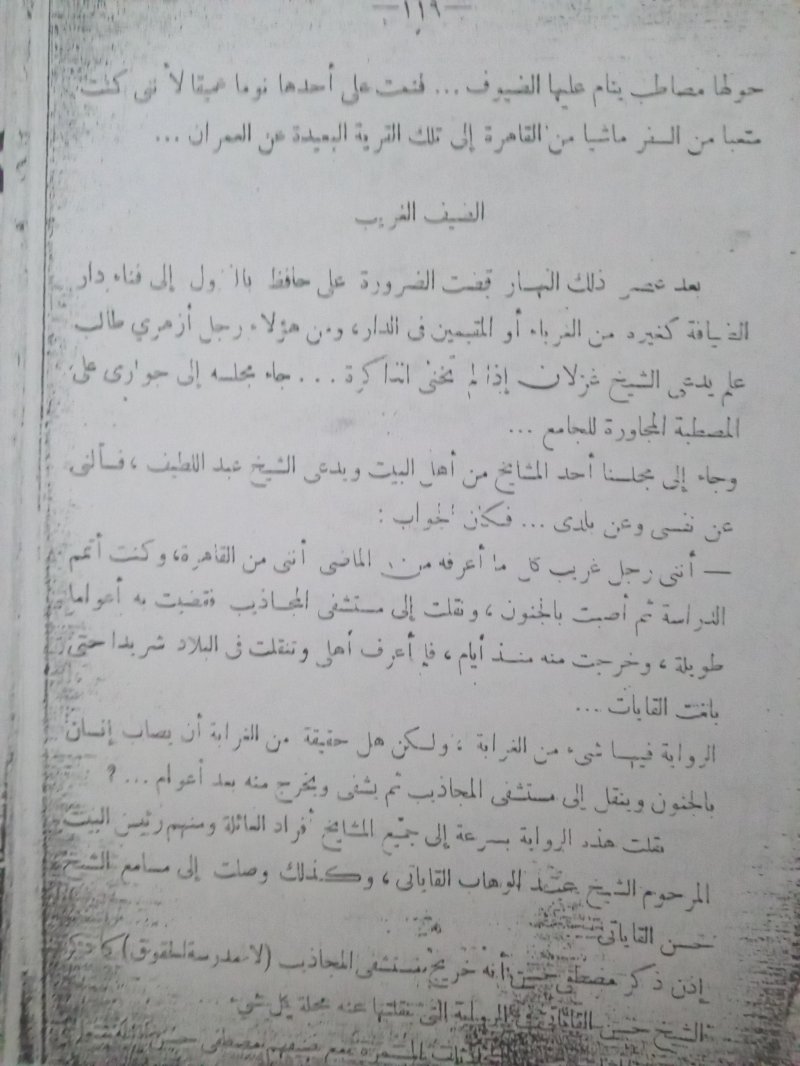 — ١١٩ —
حولها مصاطب ينام عليها الضيوف ... فنمت على أحدها نوما عميقا لأننى كنت
متعبا من السفر ماشيا من القاهرة إلى تلك القرية البعيدة عن العمران ...
الضيف الغريب
بعد عصر ذلك النهار قضت الضرورة على حافظ بالنزول إلى فناء دار
الضيافة كغيره من الغرباء أو المقيمين فى الدار، ومن هؤلاء رجل أزهري طالب
علم يدعى الشيخ غزلان إذا لم تخنى الذاكرة ... جاء مجلسه إلى جوارى على
المصطبة المجاورة للجامع ...
وجاء إلى مجلسنا أحد المشايخ من أهل البيت ويدعى الشيخ عبد اللطيف ، فسألنى
عن نفسى وعن بلدى ... فكان الجواب :
— أننى رجل غريب كل ما أعرفه من الماضى أننى من القاهرة، وكنت أتمم
الدراسة ثم أصبت بالجنون ، ونقلت إلى مستشفى المجاذيب فقضيت به أعواما
طويلة ، وخرجت منه منذ أيام ، فلم أعرف أهلى وتنقلت فى البلاد شريدا حتى
بلغت القايات ...
الرواية فيها شىء من الغرابة ، ولكن هل حقيقة من الغرابة أن يصاب إنسان
بالجنون وينقل إلى مستشفى المجاذيب ثم يشفى ويخرج منه بعد أعوام ... ؟
نقلت هذه الرواية بسرعة إلى جميع المشايخ أفراد العائلة ومنهم رئيس البيت
المرحوم الشيخ عبد الوهاب القاياتى ، وكذلك وصلت إلى مسامع الشيخ
حسن القاياتى
إذن ذكر مصطفى حسن أنه خريج مستشفى المجاذيب (لا مدرسة الحقوق) كما ذكر
الشيخ حسن القاياتى فى الرواية التى نقلتها عنه مجلة كل شىء